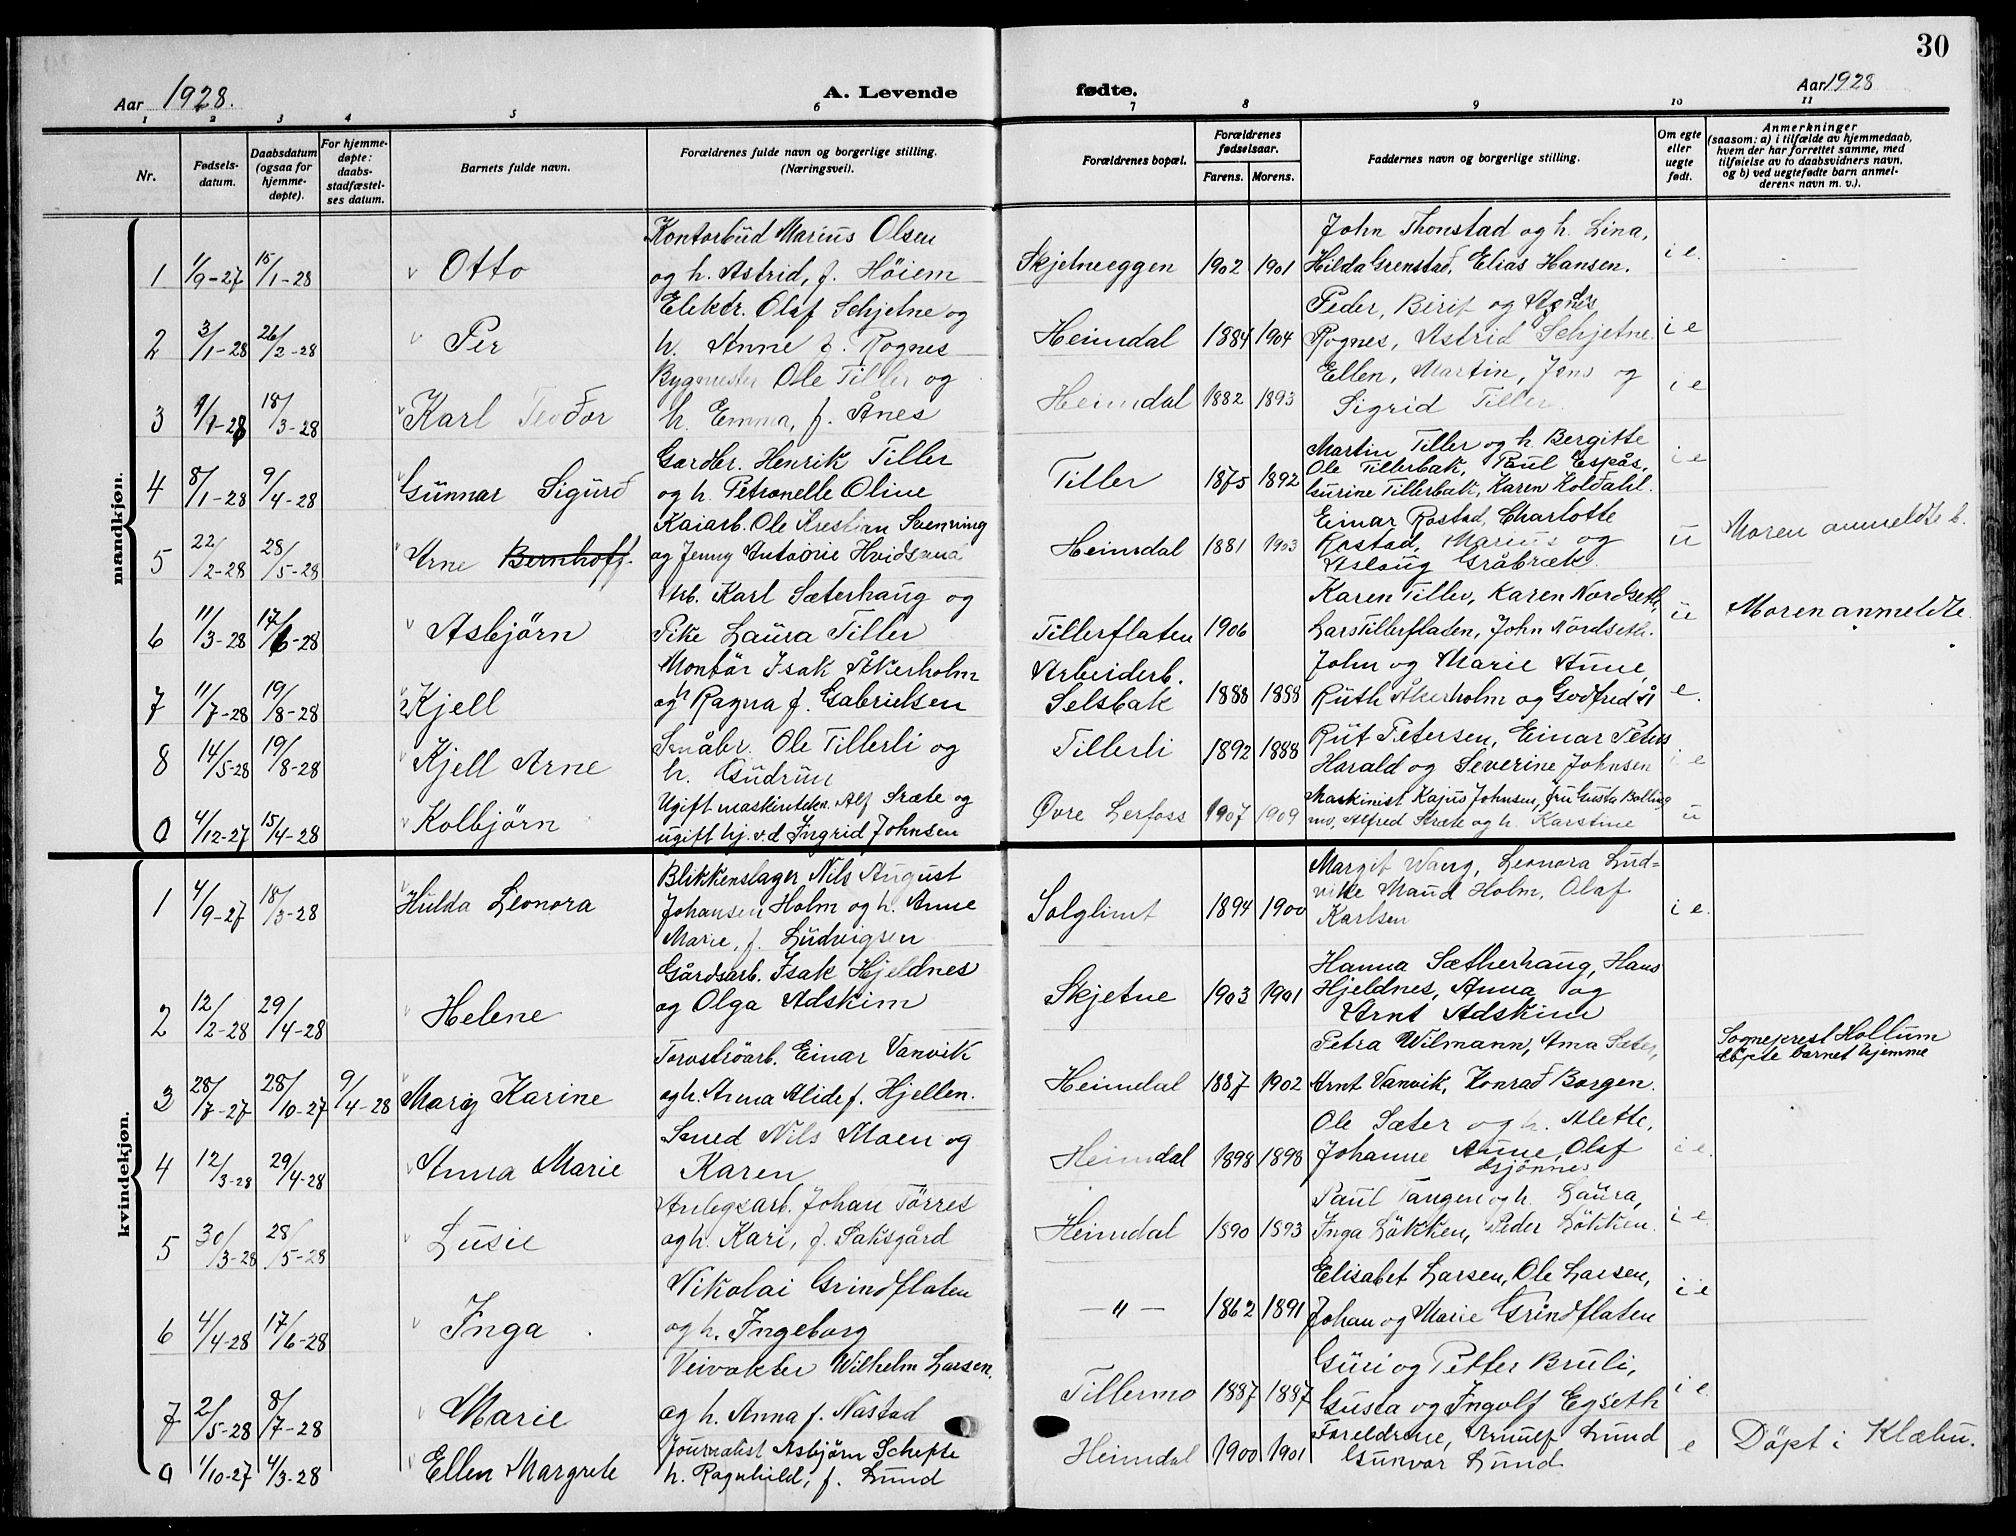 30
Aar 1928.
A. Levende
fødte.
Aar 1928
1 2 3 4 5 6 7 8 9 10 11
Nr.
Fødsels-datum.
Daabsdatum (ogsaa for hjemme-døpte).
For hjemme-døpte: daabs-stadfæstel-ses datum.
Barnets fulde navn.
Forældrenes fulde navn og borgerlige stilling. (Næringsvei).
Forældrenes bopæl.
Forældrenes fødselsaar.
Farens. Morens.
Faddernes navn og borgerlige stilling.
Om egte eller uegte født.
Anmerkninger
(saasom: a) i tilfælde av hjemmedaab, hvem der har forrettet samme, med tilføielse av to daabsvidners navn, og b) ved uegtefødte barn anmel-derens navn m. v.).
mandkjøn.
Kontorbud Marius Olsen
John Thonstad og h. Lina,
1 1/9-27 15/1-28 Otto og h. Astrid, f. Höiem Skjetneeggen 1902 1901 Hilda Grenstad, Elias Hansen. i e.
Elektr. Olaf Schjetne og
Peder, Berit og Agnes
2 3/1-28 26/2-28 Per h. Anne f. Rognes Heimdal 1884 1904 Rognes, Astrid Schjetne. i e
Bygmester Ole Tiller og
Ellen, Martin, Jens og
3 4/1-28 18/3-28 Karl Teodor h. Emma, f. Ånes Heimdal 1882 1893 Sigrid Tiller i e
Gardbr. Henrik Tiller
Martin Tiller og h. Bergitte
Ole Tillerbak, Paul Espås,
4 8/1-28 9/4-28 Gunnar Sigurd og h. Petronelle Oline Tiller 1875 1892 Gurine Tillerbak, Karen Koldahl. i e
Kaiarb. Ole Krestian Svenning
Einar Rostad, Charlotte
5 22/2-28 28/5-28 Arne Bernhoff. og Jenny Antoorie Heimdal 1881 1903 Rostad, Marius og u Moren anmeldte b.
Aslaug Gråbræk.
Arb. Karl Sæterhaug og
Karen Tiller, Karen Nordseth,
6 11/3-28 17/6-28 Asbjörn Pike Laura Tiller Tillerflaten 1906 Lars Tillerflaten, John Nordseth. u Moren anmeldte.
Montör Isak Åkerholm
Arbeiderb.
John og Marie Aune,
7 11/7-28 19/8-28 Kjell og h Ragna f. Gabrielsen Selsbak 1888 1888 Ruth Åkerholm og Godfred Å e.
Småbr. Ole Tillerli og
Rut Petersen, Einar Peters
8 14/5-28 19/8-28 Kjell Arne h. Gudrun Tillerli 1892 1888 Harald og Severine Johnsen i e
Ugift maskintekn. Alf Sræte og
Maskinist Kajus Johnsen, fru Gusta Balling
0 4/12-27 15/4-28 Kolbjörn ugift hj. v.d Ingrid Johnsen Øvre Lerfoss 1907 1909 mo, Alfred Sræte og h. Karstine u
kvindekjøn.
Blikkenslager Nils August
Margit Wang, Leonora Lud-
1 4/9-27 18/3-28 Hulda Leonora Johansen Holm og h. Anne Solglimt 1894 1900 vikke Maud Holm, Olaf i e.
Marie, f. Ludvigsen
Karlsen
Gårdsarb. Isak Hjeldnes
Hanna Sætherhaug, Hans
2 12/2-28 29/4-28 Helene og Olga Adskim Skjetne 1903 1901 Hjeldnes, Anna og
Arnt Adskim
Torvströarb. Einar Vanvik
Petra Wilmann, Anna Sæter,
Sogneprest Hollum
döpte barnet hjemme
3 28/7-27 28/10-27 9/4-28 Mary Karine og h. Anna Alide f. Hjellen. Heimdal 1887 1902 Arnt Vanvik, Konrad Borgen.
Smed Nils Moen og
Ole Sæter og h. Alette,
4 12/3-28 29/4-28 Anna Marie Karen Heimdal 1898 1898 Johanne Aune, Olaf i e.
Gjönnes
Anlegsarb. Johan Törres
Paul Tangen og h. Laura,
5 30/3-28 28/5-28 Lusie og h. Kari, f. Saksgård Heimdal 1890 1893 Inga Lökken, Peder Lökken. i e
Nikolai Grindflaten
Elisabet Larsen, Ole Larsen,
6 4/4-28 17/6-28 Inga og h. Ingeborg — " — 1862 1891 Johan og Marie Grindflaten i e
Veivokter Wilhelm Larsen.
Guri og Petter Bruli,
7 2/5-28 8/7-28 Marie og h. Anna f. Nastad Tillermo 1887 1887 Gusta og Ingolf Egseth i e
Journalist Asbjørn Schefte
Foreldrene, Arnulf Lund
0 1/10-27 4/3-28 Ellen Margrete h. Ragnhild, f. Lund Heimdal 1900 1901 Gunvor Lund e Döpt i Klæbu.